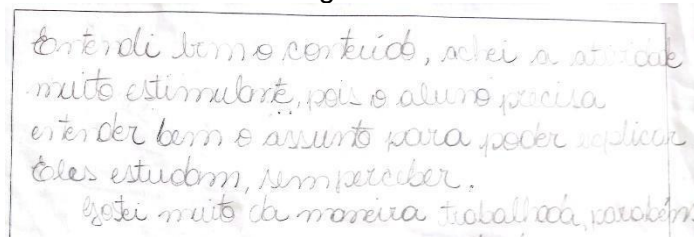 Entendi bem o conteúdo, achei a atividade
muito estimulante, pois o aluno precisa
entender bem o assunto para poder explicar
Eles estudam, sem perceber.
Gostei muito da maneira trabalhada, parabéns